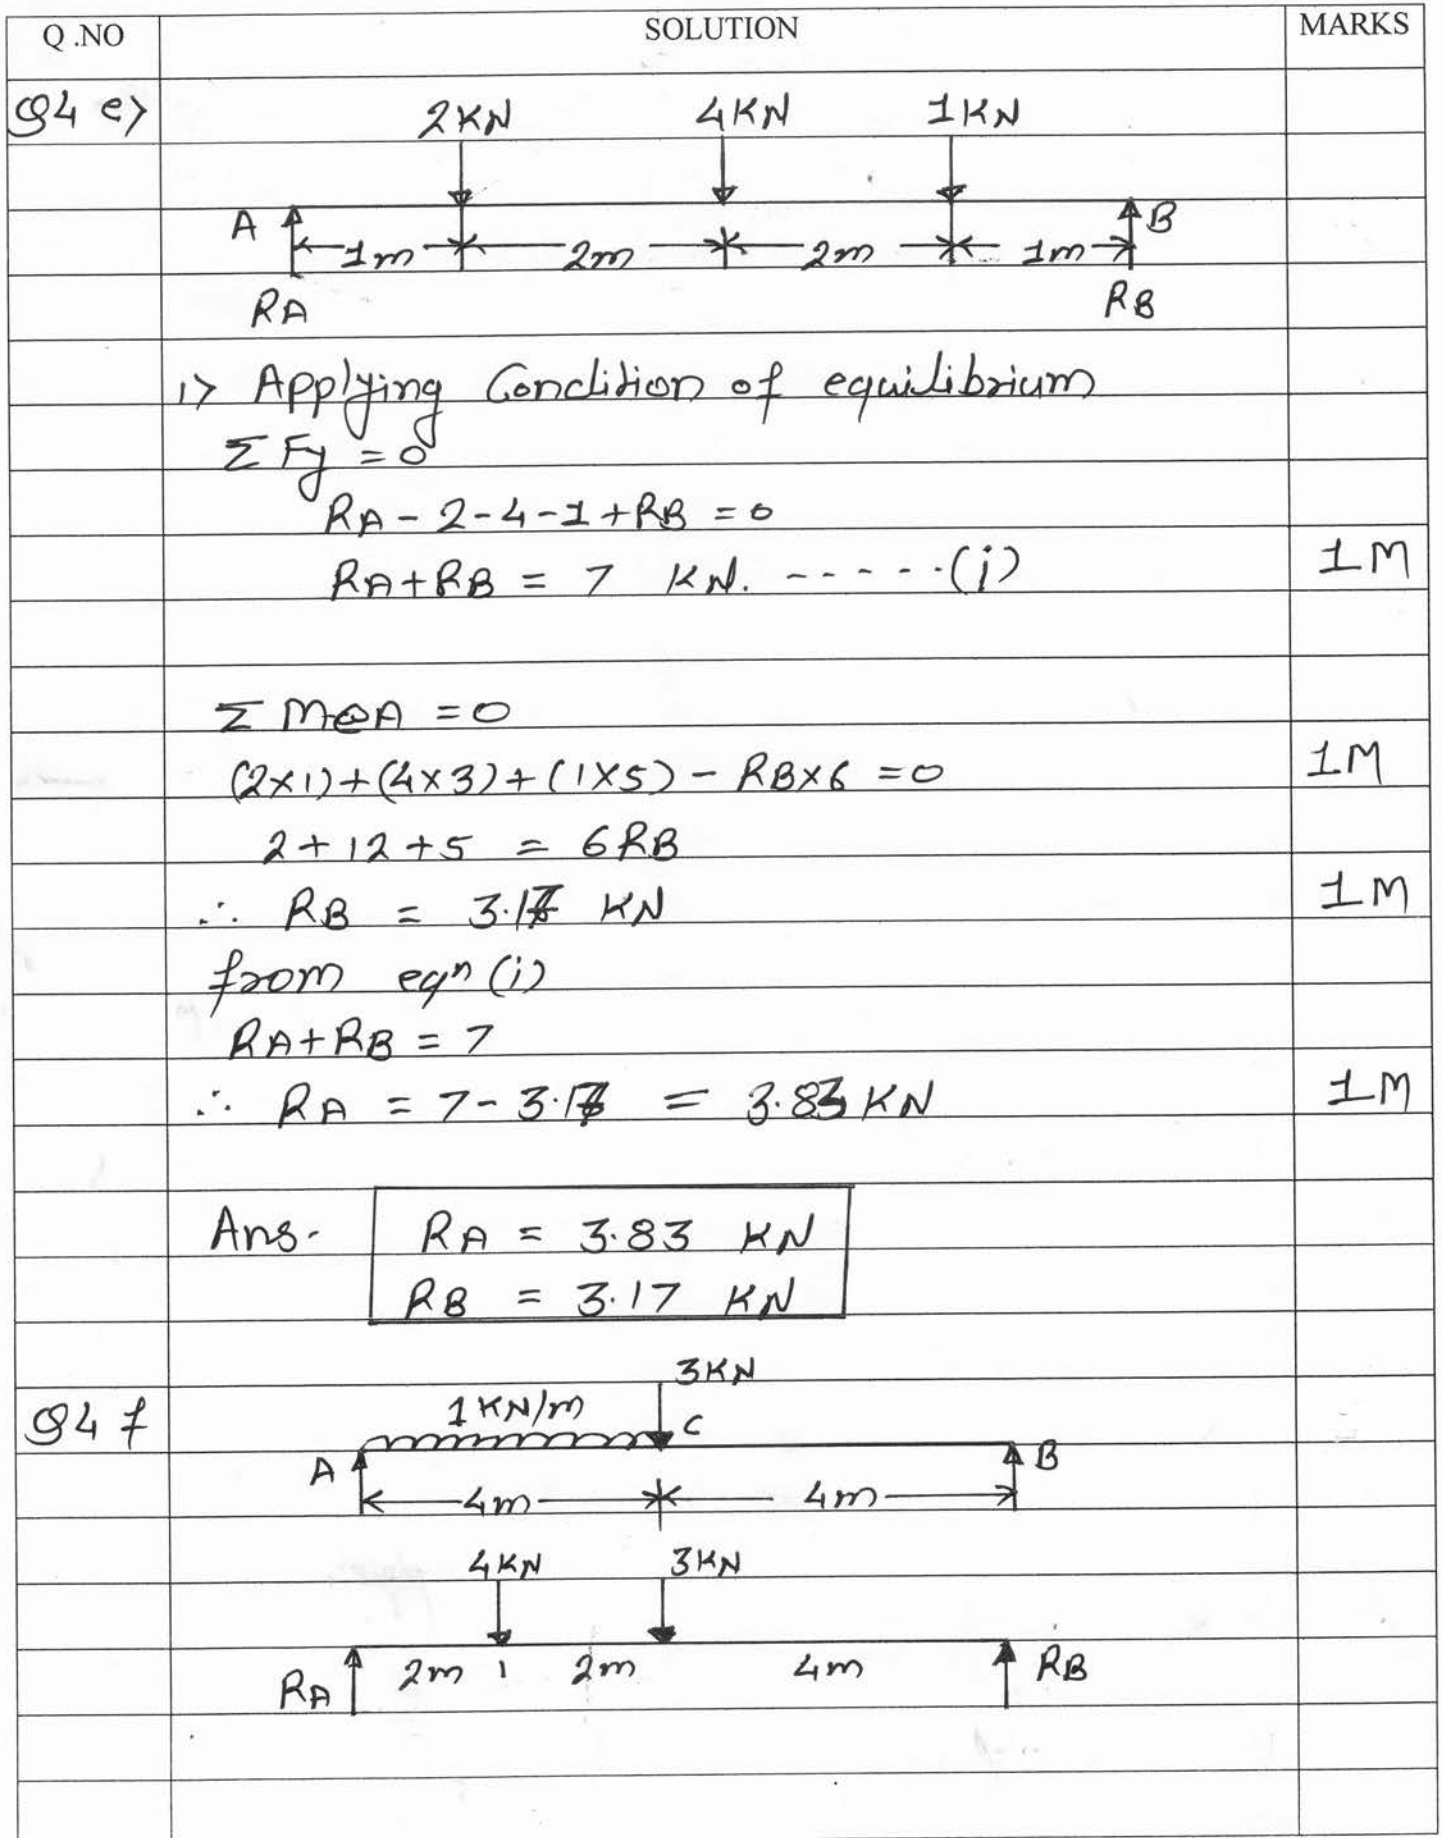 Q .NO SOLUTION MARKS
Q4 e>
2KN 4KN 1KN
A B
1m 2m 2m 1m
RA RB
1> Applying Condition of equilibrium
Σ Fy = 0
RA - 2 - 4 - 1 + RB = 0
RA + RB = 7 KN. - - - - - (i) 1M
Σ M@A = 0
(2×1) + (4×3) + (1×5) - RB×6 = 0 1M
2 + 12 + 5 = 6RB
∴ RB = 3.17 KN 1M
from eqⁿ (i)
RA + RB = 7
∴ RA = 7 - 3.17 = 3.83 KN 1M
Ans. RA = 3.83 KN
RB = 3.17 KN
3KN
Q4 f 1KN/m C
A B
4m 4m
4KN 3KN
RA 2m 2m 4m RB